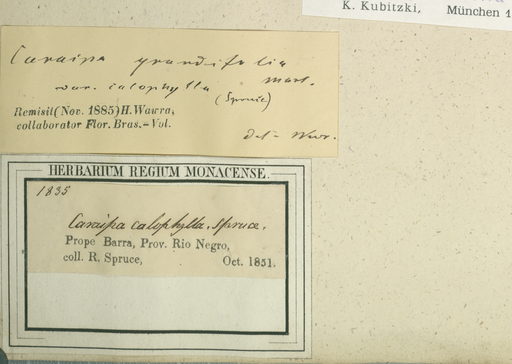 K. Kubitzki, München 1
Caraipa grandifolia
Mart.
var. calophylla
(Spruce)
Remisit (Nov. 1885) H. Wawra,
collaborator Flor. Bras. - Vol.
det. Wawr.
HERBARIUM REGIUM MONACENSE.
1835
Caraipa calophylla. Spruce.
Prope Barra, Prov. Rio Negro,
coll. R. Spruce, Oct. 1851.